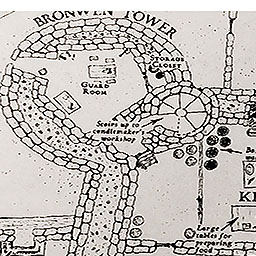 BRONWEN TOWER
STORAGE
CLOSET
GUARD
ROOM
Stairs up to
candlemaker's
workshop
Large
tables for
preparing
food